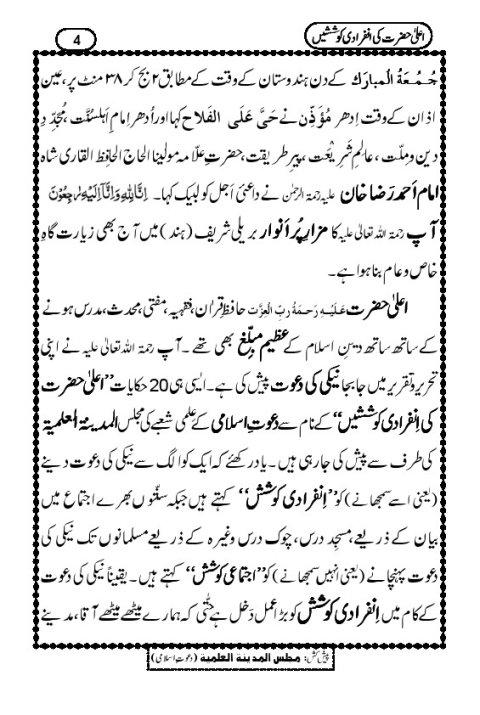 اعلیٰ حضرت کی انفرادی کوششیں
4
جُمُعَۃُ الْمبارَک کے دن ہندوستان کے وقت کے مطابق ۲ بج کر ۳۸ منٹ پر، عین
اذان کے وقت اِدھر مُؤَذِّن نے حَیَّ عَلَی الْفَلاح کہا اور اُدھر اِمامِ اَہلسنّت، مُجَدِّدِ
دین و ملّت، عالمِ شَرِیْعَت، پیرِ طریقت، حضرتِ علّامہ مولٰینا الحاج الحافِظ القاری شاہ
امام اَحمد رَضا خان علیہ رحمۃ الرحمٰن نے داعئی اَجل کو لبیک کہا۔ اِنَّا لِلّٰہِ وَاِنَّاۤ اِلَیْہِ رٰجِعُوْنَ
آپ رحمۃ اللہ تعالیٰ علیہ کا مزارِ پُر اَنوار بریلی شریف (ہند) میں آج بھی زیارت گاہِ
خاص و عام بنا ہوا ہے۔
اعلیٰ حضرت عَلَیْہِ رَحمَۃُ ربِّ الْعِزَّت حافظِ قرآن، فقیہہ، مفتی، محدث، مدرس ہونے
کے ساتھ ساتھ دینِ اسلام کے عظیم مبلّغ بھی تھے ۔ آپ رحمۃ اللہ تعالیٰ علیہ نے اپنی
تحریر و تقریر میں جابجا نیکی کی دعوت پیش کی ہے۔ ایسی ہی 20 حکایات ’’اعلیٰ حضرت
کی اِنفرادی کوششیں‘‘ کے نام سے دعوتِ اسلامی کے علمی شعبے کی مجلس المدینۃ العلمیۃ
کی طرف سے پیش کی جارہی ہیں ۔ یاد رکھئے کہ ایک کو الگ سے نیکی کی دعوت دینے
(یعنی اسے سمجھانے) کو ’’اِنفرادی کوشش‘‘ کہتے ہیں جبکہ سنّتوں بھرے اجتماع میں
بیان کے ذریعے، مسجد درس، چوک درس وغیرہ کے ذریعے مسلمانوں تک نیکی کی
دعوت پہنچانے (یعنی انہیں سمجھانے) کو ’’اجتماعی کوشش‘‘ کہتے ہیں۔ یقیناً نیکی کی دعوت
کے کام میں اِنفرادی کوشش کو بڑا عمل دَخل ہے حتّٰی کہ ہمارے میٹھے میٹھے آقا، مدینے
پیش کش: مجلس المدینۃ العلمیۃ (دعوتِ اسلامی)